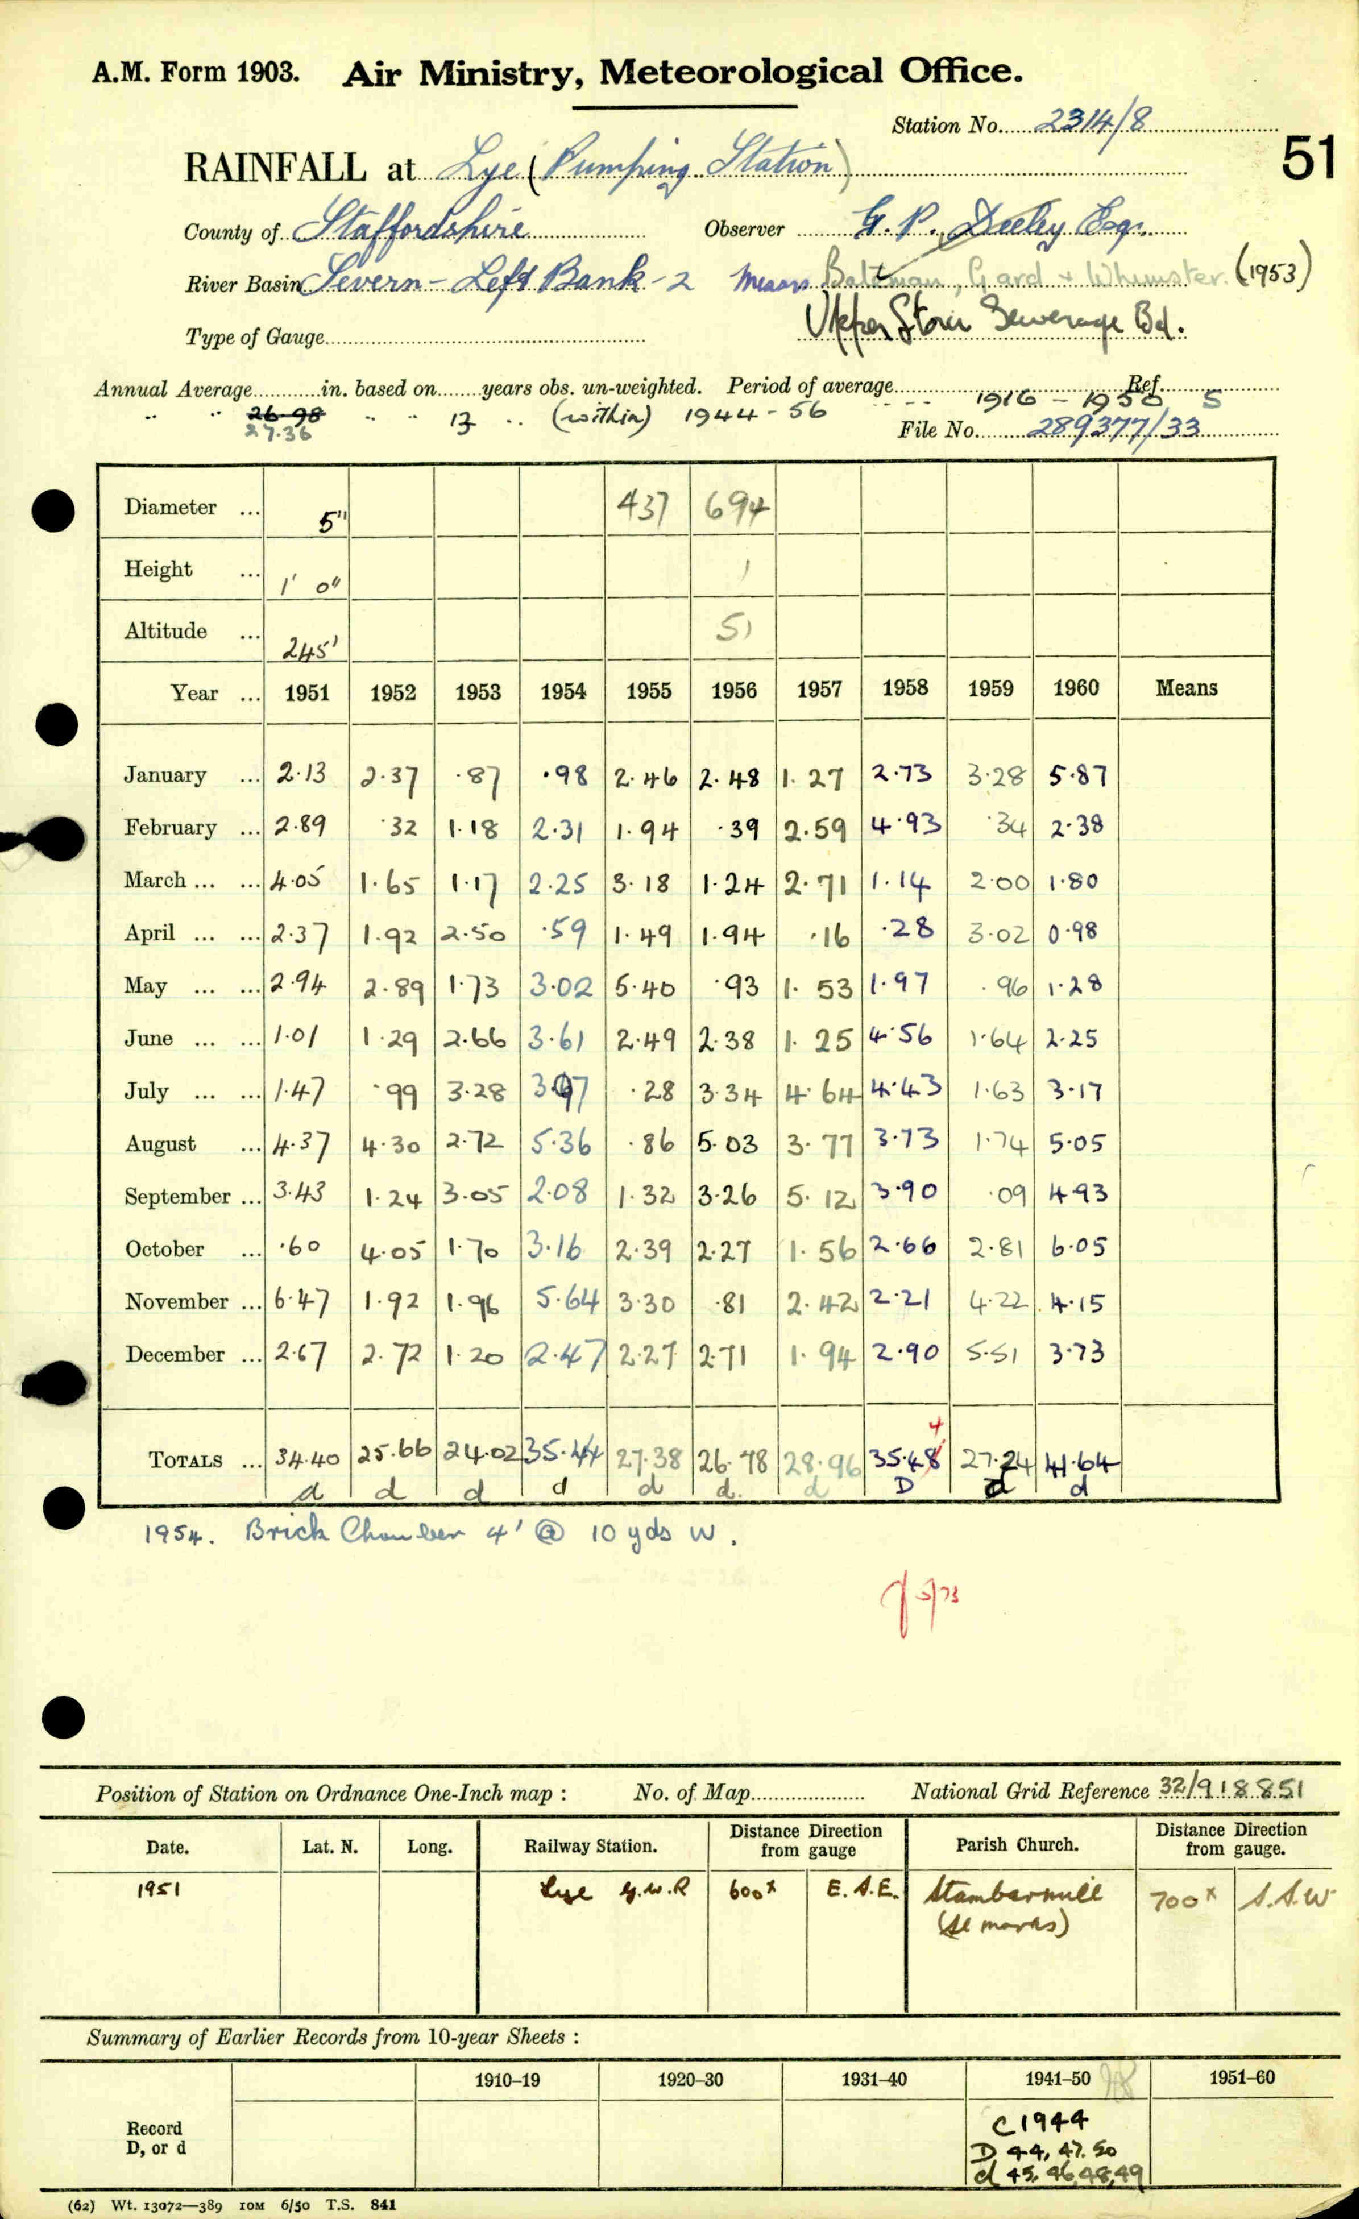 A.M. Form 1903. Air Ministry, Meteorological Office.
Station No. 2314/8
51
RAINFALL at Lye (Pumping Station)
County of Staffordshire Observer G. P. Deeley Esq.
River Basin Severn - Left Bank - 2 Messrs Bateman, Gard & Whumster. (1953)
Type of Gauge Upper Stour Sewerage Bd.
Annual Average in. based on years obs. un-weighted. Period of average 1916 - 1950 Ref. 5
" " 26.98 " " 13 " (within) 1944 - 56
27.36
File No. 289377/33
Diameter ... 5" 437 694
Height ... 1' 0" 1
Altitude ... 245' 51
Year ... 1951 1952 1953 1954 1955 1956 1957 1958 1959 1960 Means
January ... 2.13 2.37 .87 .98 2.46 2.48 1.27 2.73 3.28 5.87
February ... 2.89 .32 1.18 2.31 1.94 .39 2.59 4.93 .34 2.38
March ... ... 4.05 1.65 1.17 2.25 3.18 1.24 2.71 1.14 2.00 1.80
April ... ... 2.37 1.92 2.50 .59 1.49 1.94 .16 .28 3.02 0.98
May ... ... 2.94 2.89 1.73 3.02 5.40 .93 1.53 1.97 .96 1.28
June ... ... 1.01 1.29 2.66 3.61 2.49 2.38 1.25 4.56 1.64 2.25
July ... ... 1.47 .99 3.28 3.97 .28 3.34 4.64 4.43 1.63 3.17
August ... 4.37 4.30 2.72 5.36 .86 5.03 3.77 3.73 1.74 5.05
September ... 3.43 1.24 3.05 2.08 1.32 3.26 5.12 3.90 .09 4.93
October ... .60 4.05 1.70 3.16 2.39 2.27 1.56 2.66 2.81 6.05
November ... 6.47 1.92 1.96 5.64 3.30 .81 2.42 2.21 4.22 4.15
December ... 2.67 2.72 1.20 2.47 2.27 2.71 1.94 2.90 5.51 3.73
4
TOTALS ... 34.40 25.66 24.02 35.44 27.38 26.78 28.96 35.48 27.24 41.64
d d d d d d d D d d
1954. Brick Chamber 4' @ 10 yds W.
5/73
Position of Station on Ordnance One-Inch map : No. of Map National Grid Reference 32/918851
Date. Lat. N. Long. Railway Station. Distance Direction from gauge Parish Church. Distance Direction from gauge.
1951 Lye G.W.R 600x E.S.E. Stambermill 700x S.S.W
(St marks)
Summary of Earlier Records from 10-year Sheets :
1910–19 1920–30 1931–40 1941–50 1951–60
Record
D, or d
C 1944
D 44, 47. 50
d 45. 46, 48, 49
(62) Wt. 13072—389 10M 6/50 T.S. 841